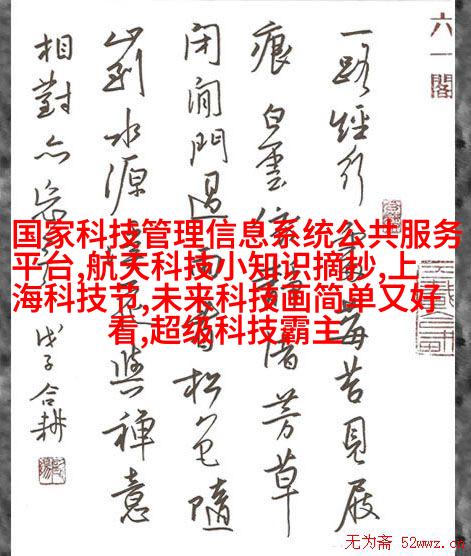 六一閣
一路經行處莓苔見屐
痕白雲依静渚芳草
闭闲門過雨看松色隨
山到水源溪花與禅意
相對亦忘言
戊子合耕
国家科技管理信息系统公共服务
平台,航天科技小知识摘抄,上
海科技节,未来科技画简单又好
看,超级科技霸主
无为斋 52wwz.cn